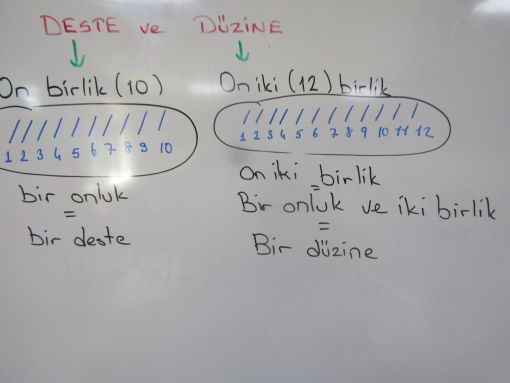 DESTE ve DÜZİNE
On birlik (10)
1 2 3 4 5 6 7 8 9 10
bir onluk
=
bir deste
On iki (12) birlik
1 2 3 4 5 6 7 8 9 10 11 12
On iki birlik
=
Bir onluk ve iki birlik
=
Bir düzine